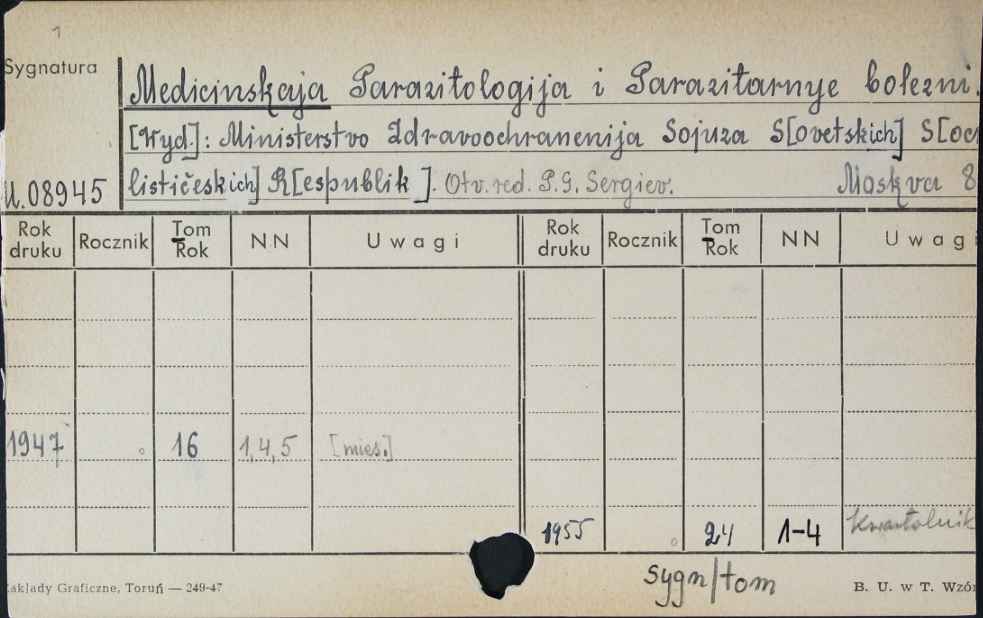 1
Sygnatura
Medicinskaja Parazitologija i Parazitarnye bolezni.
[Wyd.]: Ministerstvo Zdravoochranenija Sojuza S[ovetskich] S[oc
U.08945 lističeskich] R[espublik]. Otv. red. P.G. Sergiev. Moskva 8
Rok druku Rocznik Tom Rok NN Uwagi Rok druku Rocznik Tom Rok NN Uwagi
1947 16 1,4,5 [mies.]
1955 24 1-4 kwartalnik
sygn/tom
Zakłady Graficzne, Toruń — 249-47 B. U. w T. Wzór